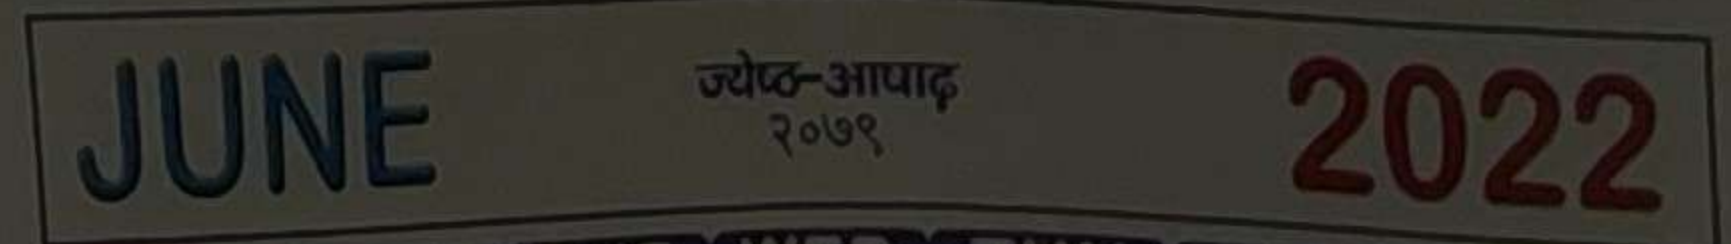 JUNE
ज्येष्ठ-आषाढ़
२०७९
2022